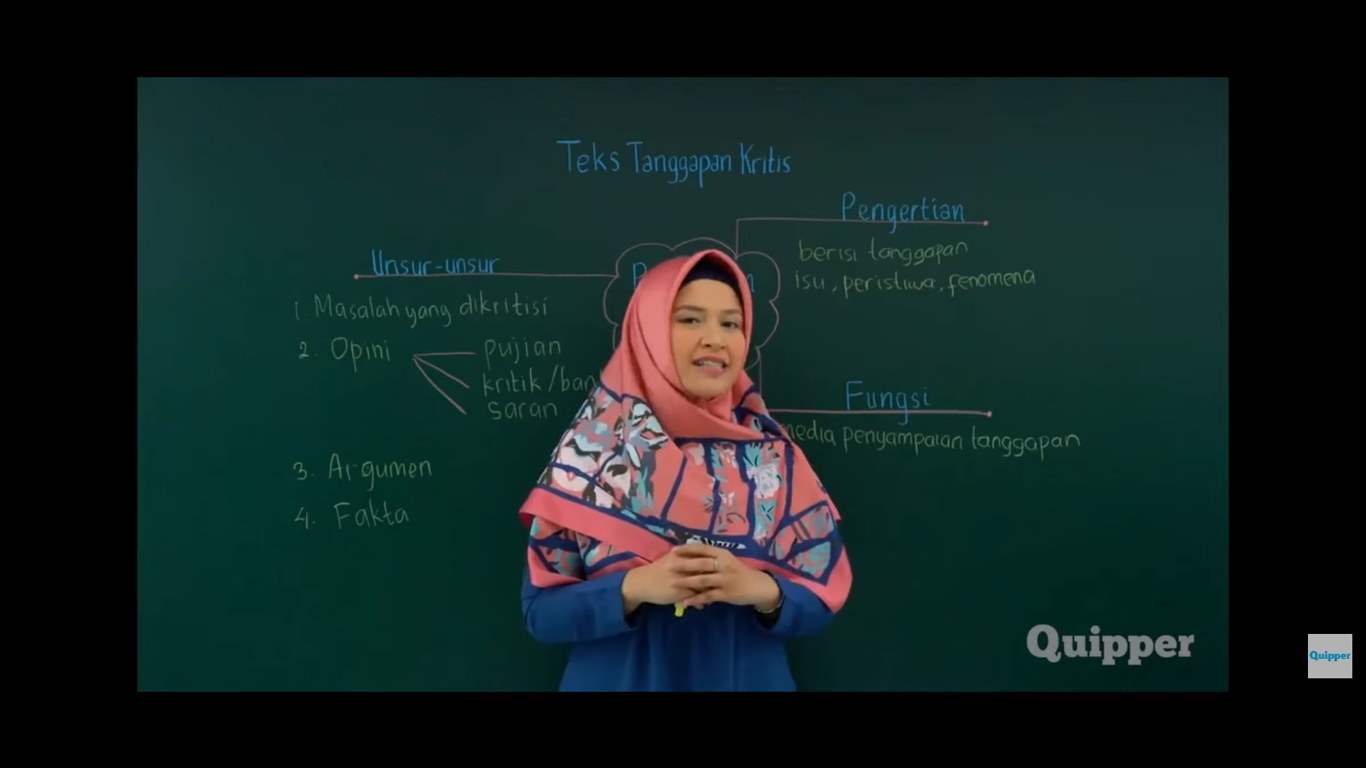 Teks Tanggapan Kritis
Unsur-unsur
1. Masalah yang dikritisi
2. Opini
pujian
kritik/ban
saran
3. Argumen
4. Fakta
Pengertian
berisi tanggapan
isu, peristiwa, fenomena
Fungsi
media penyampaian tanggapan
Quipper
Quipper